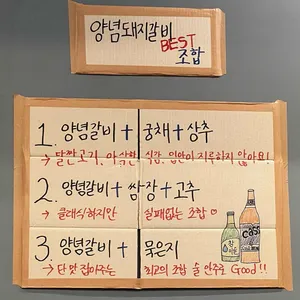 양념돼지갈비
BEST
조합
1. 양념갈비 + 궁채 + 상추
→ 달짠고기, 아삭한 식감, 입안이 지루하지 않아요!
2. 양념갈비 + 쌈장 + 고추
→ 클래식하지만 실패없는 조합
3. 양념갈비 + 묵은지
→ 단맛 잡아주는 최고의 조합 술안주로 Good!!
Cass